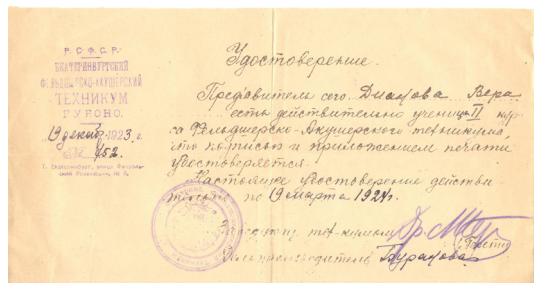 Р.С.Ф.С.Р.
ЕКАТЕРИНБУРГСКИЙ
ФЕЛЬДШЕРСКО-АКУШЕРСКИЙ
ТЕХНИКУМ
ГУБОНО.
19 декаб. 1923 г.
№ 752.
г. Екатеринбург, улица
№ 8.
Удостоверение.
Пред'явителем сего Диакова Вера
есть действительно ученица II кур-
са Фельдшерско-Акушерского техникума,
что подписью и приложением печати
удостоверяется.
Настоящее удостоверение действи-
тельно по 19 марта 1924 г.
тех-кумом
Делопроизводитель Буракова